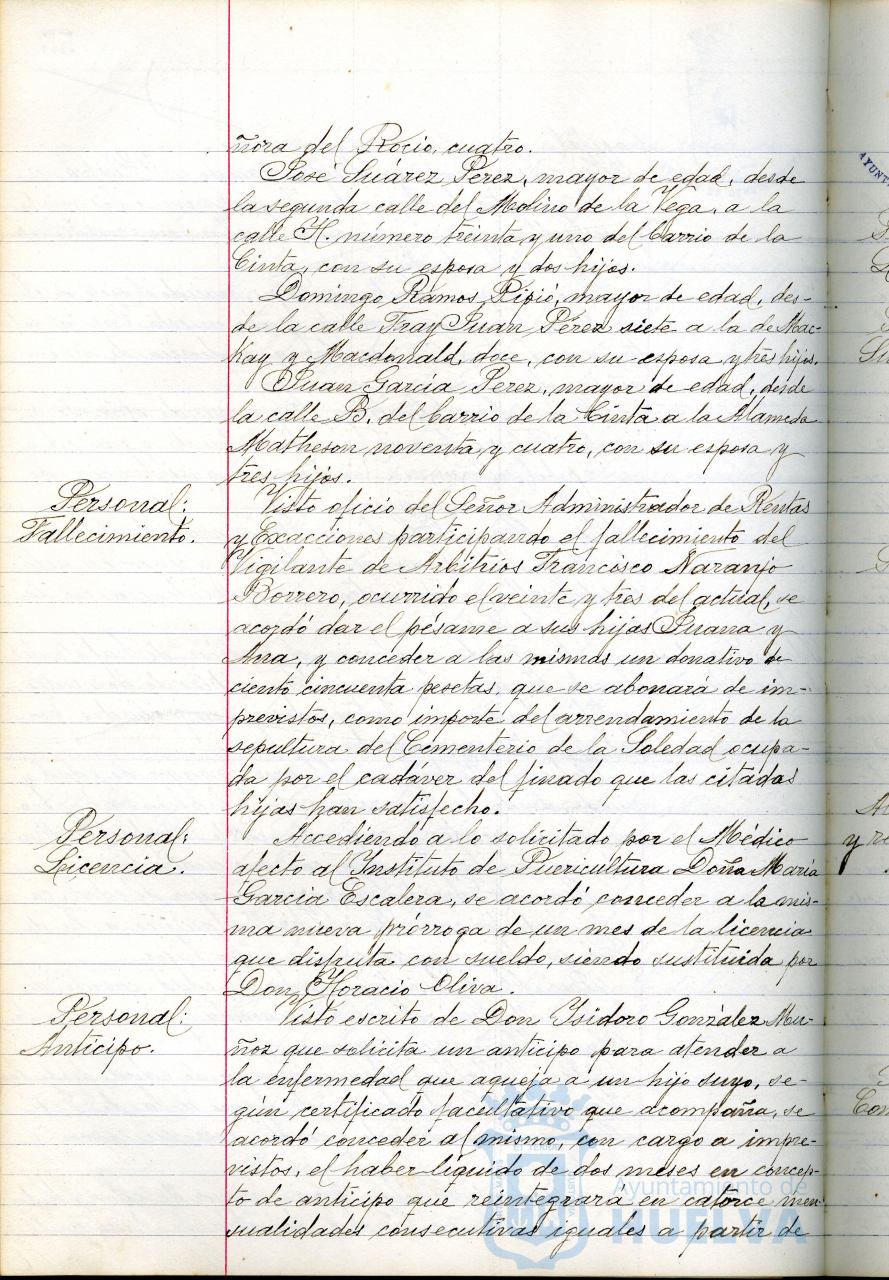 ñora del Rocio, cuatro.
José Suárez Perez, mayor de edad, desde
la segunda calle del Molino de la Vega, a la
calle H. número treinta y uno del barrio de la
Cinta, con su esposa y dos hijos.
Domingo Ramos Pipió, mayor de edad, des-
de la calle Fray Juan Pérez siete a la de Mac-
Kay y Macdonald, doce, con su esposa y tres hijos.
Juan García Perez, mayor de edad, desde
la calle B. del barrio de la Cinta a la Alameda
Matheson noventa y cuatro, con su esposa y
tres hijos.
Personal:
Fallecimiento.
Visto oficio del Señor Administrador de Rentas
y Exacciones participando el fallecimiento del
Vigilante de Arbitrios Francisco Naranjo
Borrero, ocurrido el veinte y tres del actual, se
acordó dar el pésame a sus hijas Juana y
Ana, y conceder a las mismas un donativo de
ciento cincuenta pesetas, que se abonará de im-
previstos, como importe del arrendamiento de la
sepultura del Cementerio de la Soledad ocupa-
da por el cadáver del finado que las citadas
hijas han satisfecho.
Personal:
Licencia.
Accediendo a lo solicitado por el Médico
afecto al Instituto de Puericultura Doña Maria
Garcia Escalera, se acordó conceder a la mis-
ma nueva prórroga de un mes de la licencia
que disfruta con sueldo, siendo sustituida por
Don Horacio Oliva.
Personal:
Anticipo.
Visto escrito de Don Isidoro González Mu-
ñoz que solicita un anticipo para atender a
la enfermedad que aqueja a un hijo suyo, se-
gún certificado facultativo que acompaña, se
acordó conceder al mismo, con cargo a impre-
vistos, el haber líquido de dos meses en concep-
to de anticipo que reintegrará en catorce men-
sualidades consecutivas iguales a partir de
Ayuntamiento de
HUELVA